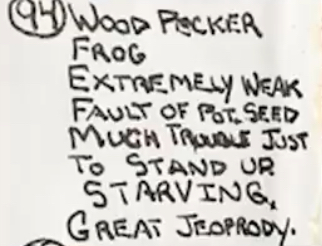 94 WOOD PECKER
FROG
EXTREMELY WEAK
FAULT OF POT. SEED
MUCH TROUBLE JUST
TO STAND UP
STARVING,
GREAT JEOPRODY.